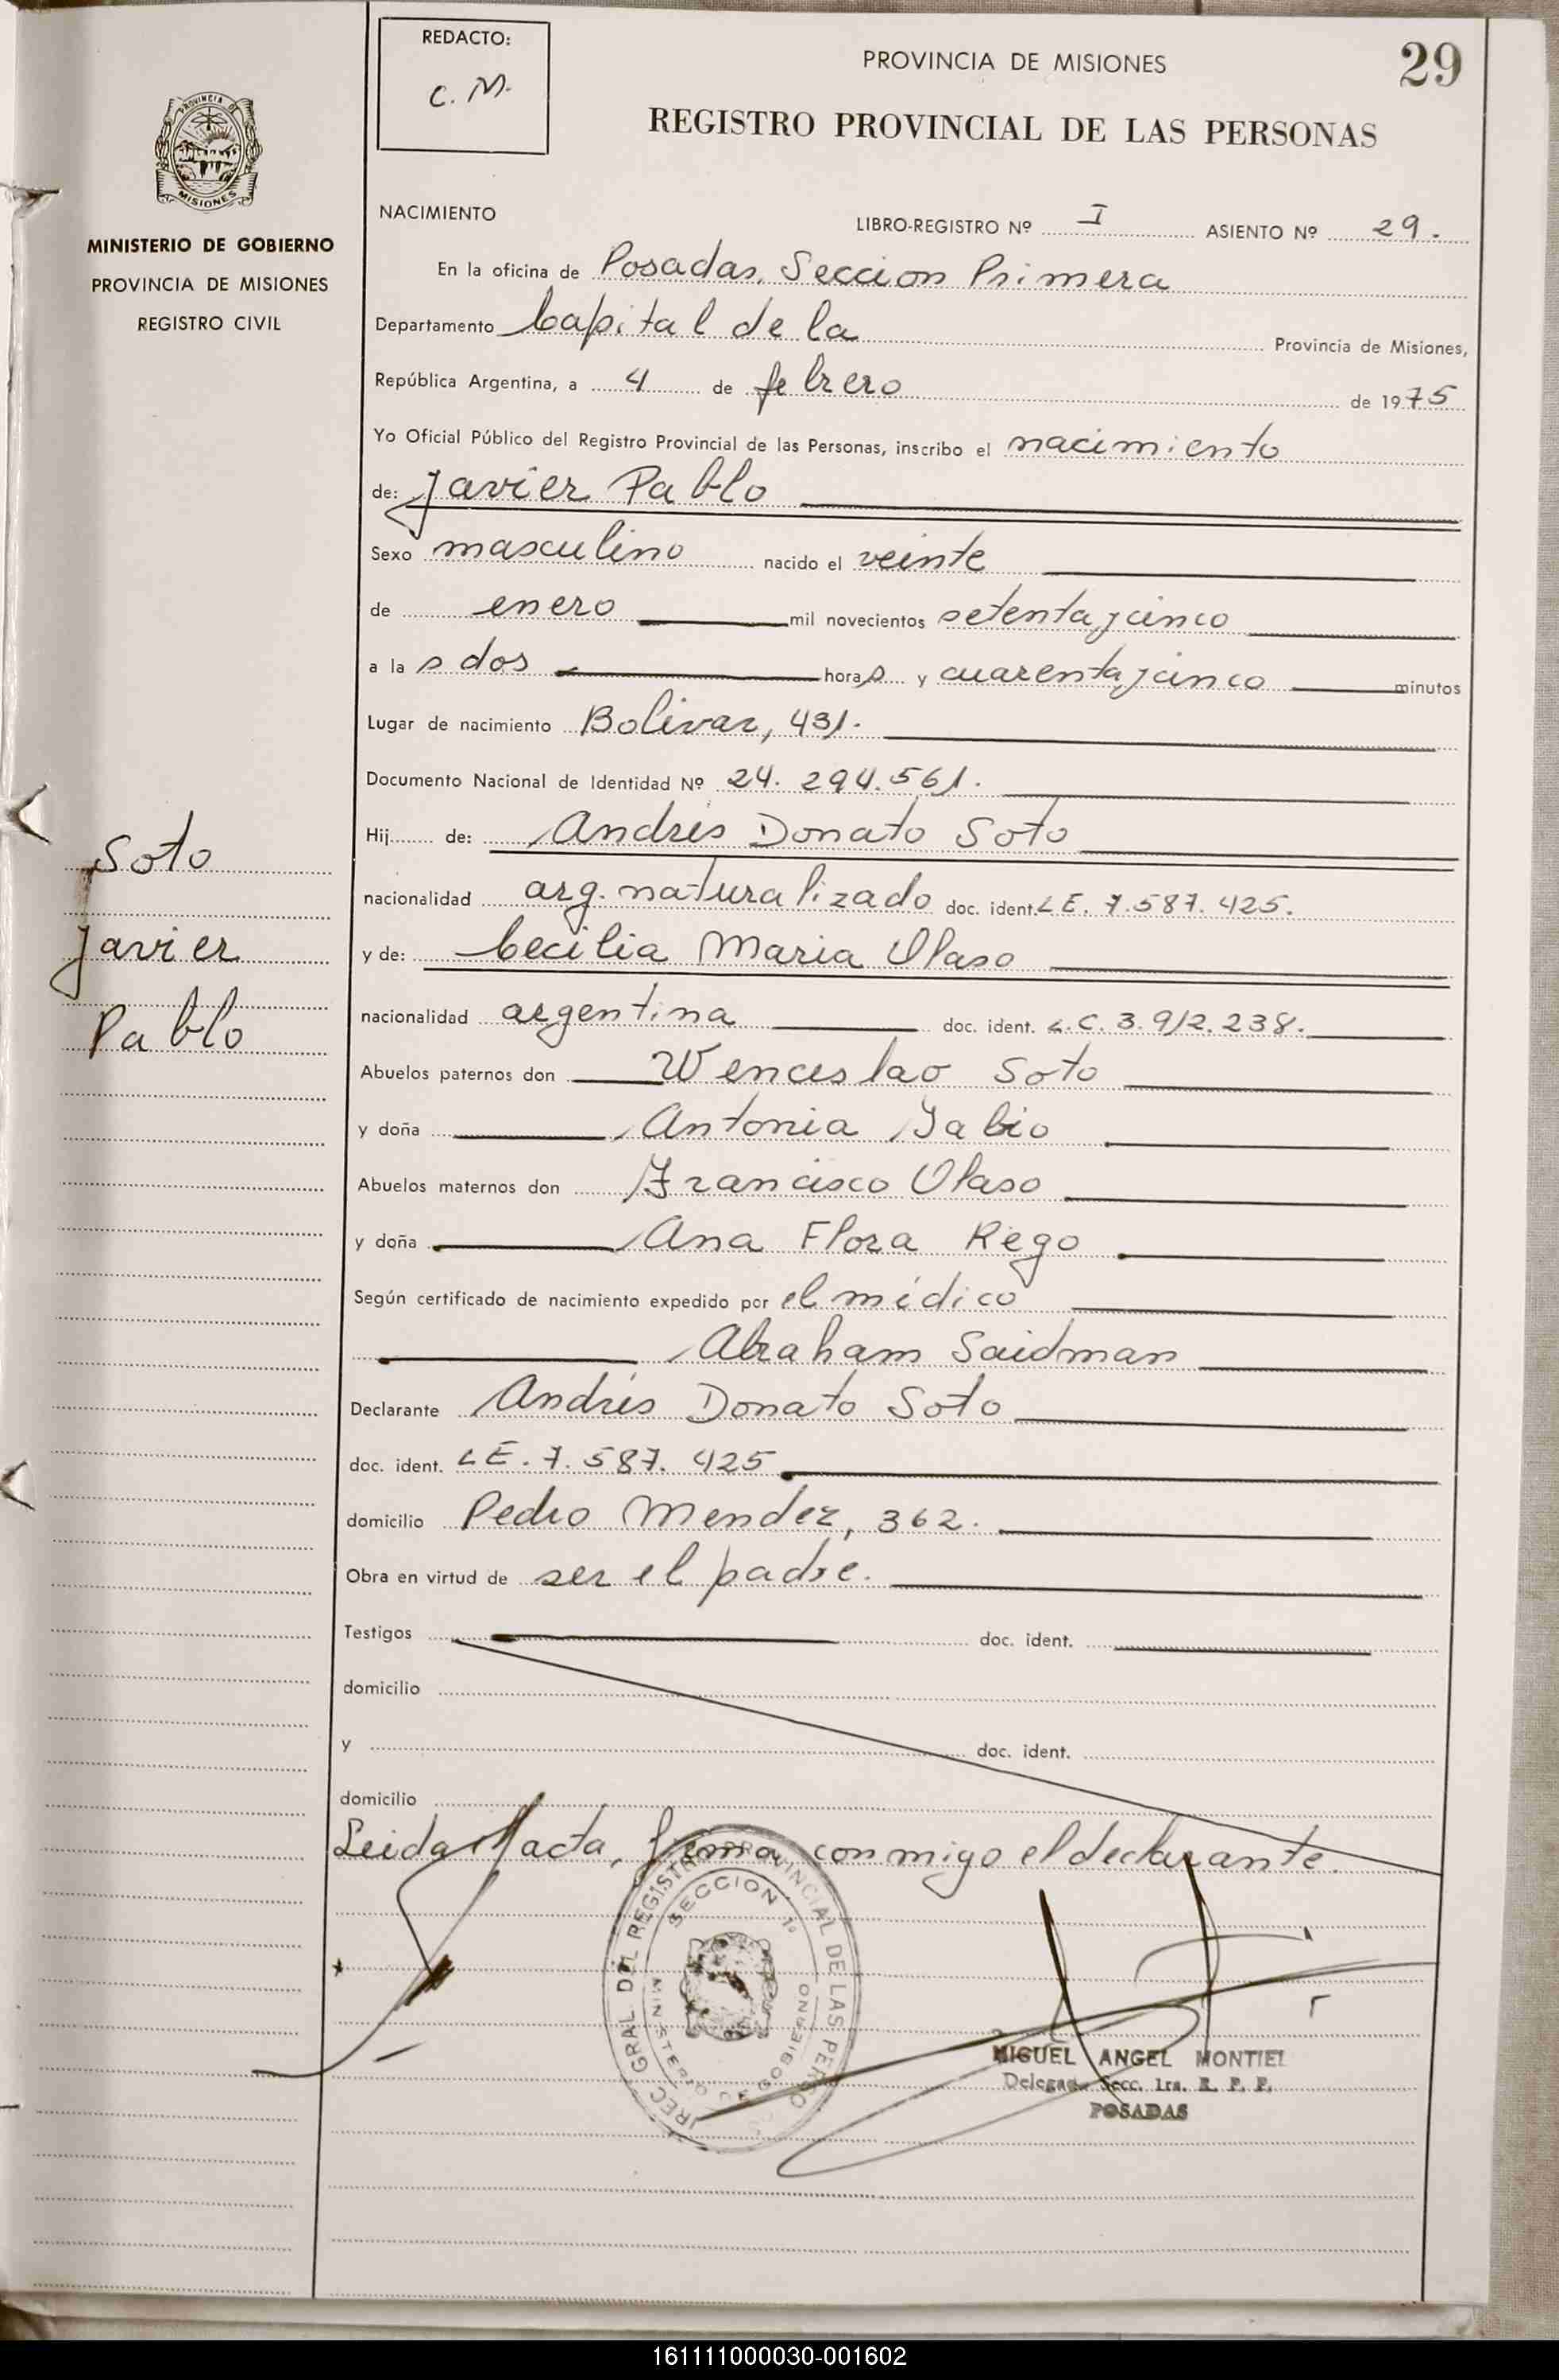 REDACTO:
C. M.
PROVINCIA DE MISIONES
29
REGISTRO PROVINCIAL DE LAS PERSONAS
PROVINCIA DE
MISIONES
MINISTERIO DE GOBIERNO
PROVINCIA DE MISIONES
REGISTRO CIVIL
NACIMIENTO LIBRO-REGISTRO Nº I ASIENTO Nº 29.
En la oficina de Posadas, Seccion Primera
Departamento Capital de la Provincia de Misiones,
República Argentina, a 4 de febrero de 1975
Yo Oficial Público del Registro Provincial de las Personas, inscribo el nacimiento
de: Javier Pablo
Sexo masculino nacido el veinte
de enero mil novecientos setenta y cinco
a la s dos horas y cuarenta y cinco minutos
Lugar de nacimiento Bolivar, 431.
Documento Nacional de Identidad Nº 24. 294. 561.
Hij de: Andrés Donato Soto
nacionalidad arg. naturalizado doc. ident. L E. 7. 587. 425.
y de: Cecilia Maria Olaso
nacionalidad argentina doc. ident. L. C. 3. 912. 238.
Abuelos paternos don Wenceslao Soto
y doña Antonia Sabio
Abuelos maternos don Francisco Olaso
y doña Ana Flora Rego
Según certificado de nacimiento expedido por el médico
Abraham Saidman
Declarante Andrés Donato Soto
doc. ident. L E. 7. 587. 425
domicilio Pedro Mendez, 362.
Obra en virtud de ser el padre.
Testigos doc. ident.
domicilio
y doc. ident.
domicilio
Leida el acta, firma conmigo el declarante.
Soto
Javier
Pablo
GRAL DEL REGISTRO PROVINCIAL DE LAS PERSO
SECCION 1ª
MINISTERIO DE GOBIERNO
MIGUEL ANGEL MONTIEL
Delegado Secc. 1ra. R. P. P.
POSADAS
161111000030-001602